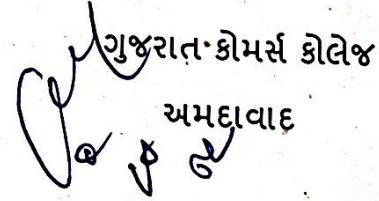 ગુજરાત કોમર્સ કોલેજ
અમદાવાદ